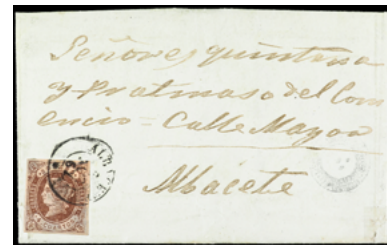 Señores quintana
y Pratmaso del Com
ercio = Calle Mayor
Albacete
CUARTOS